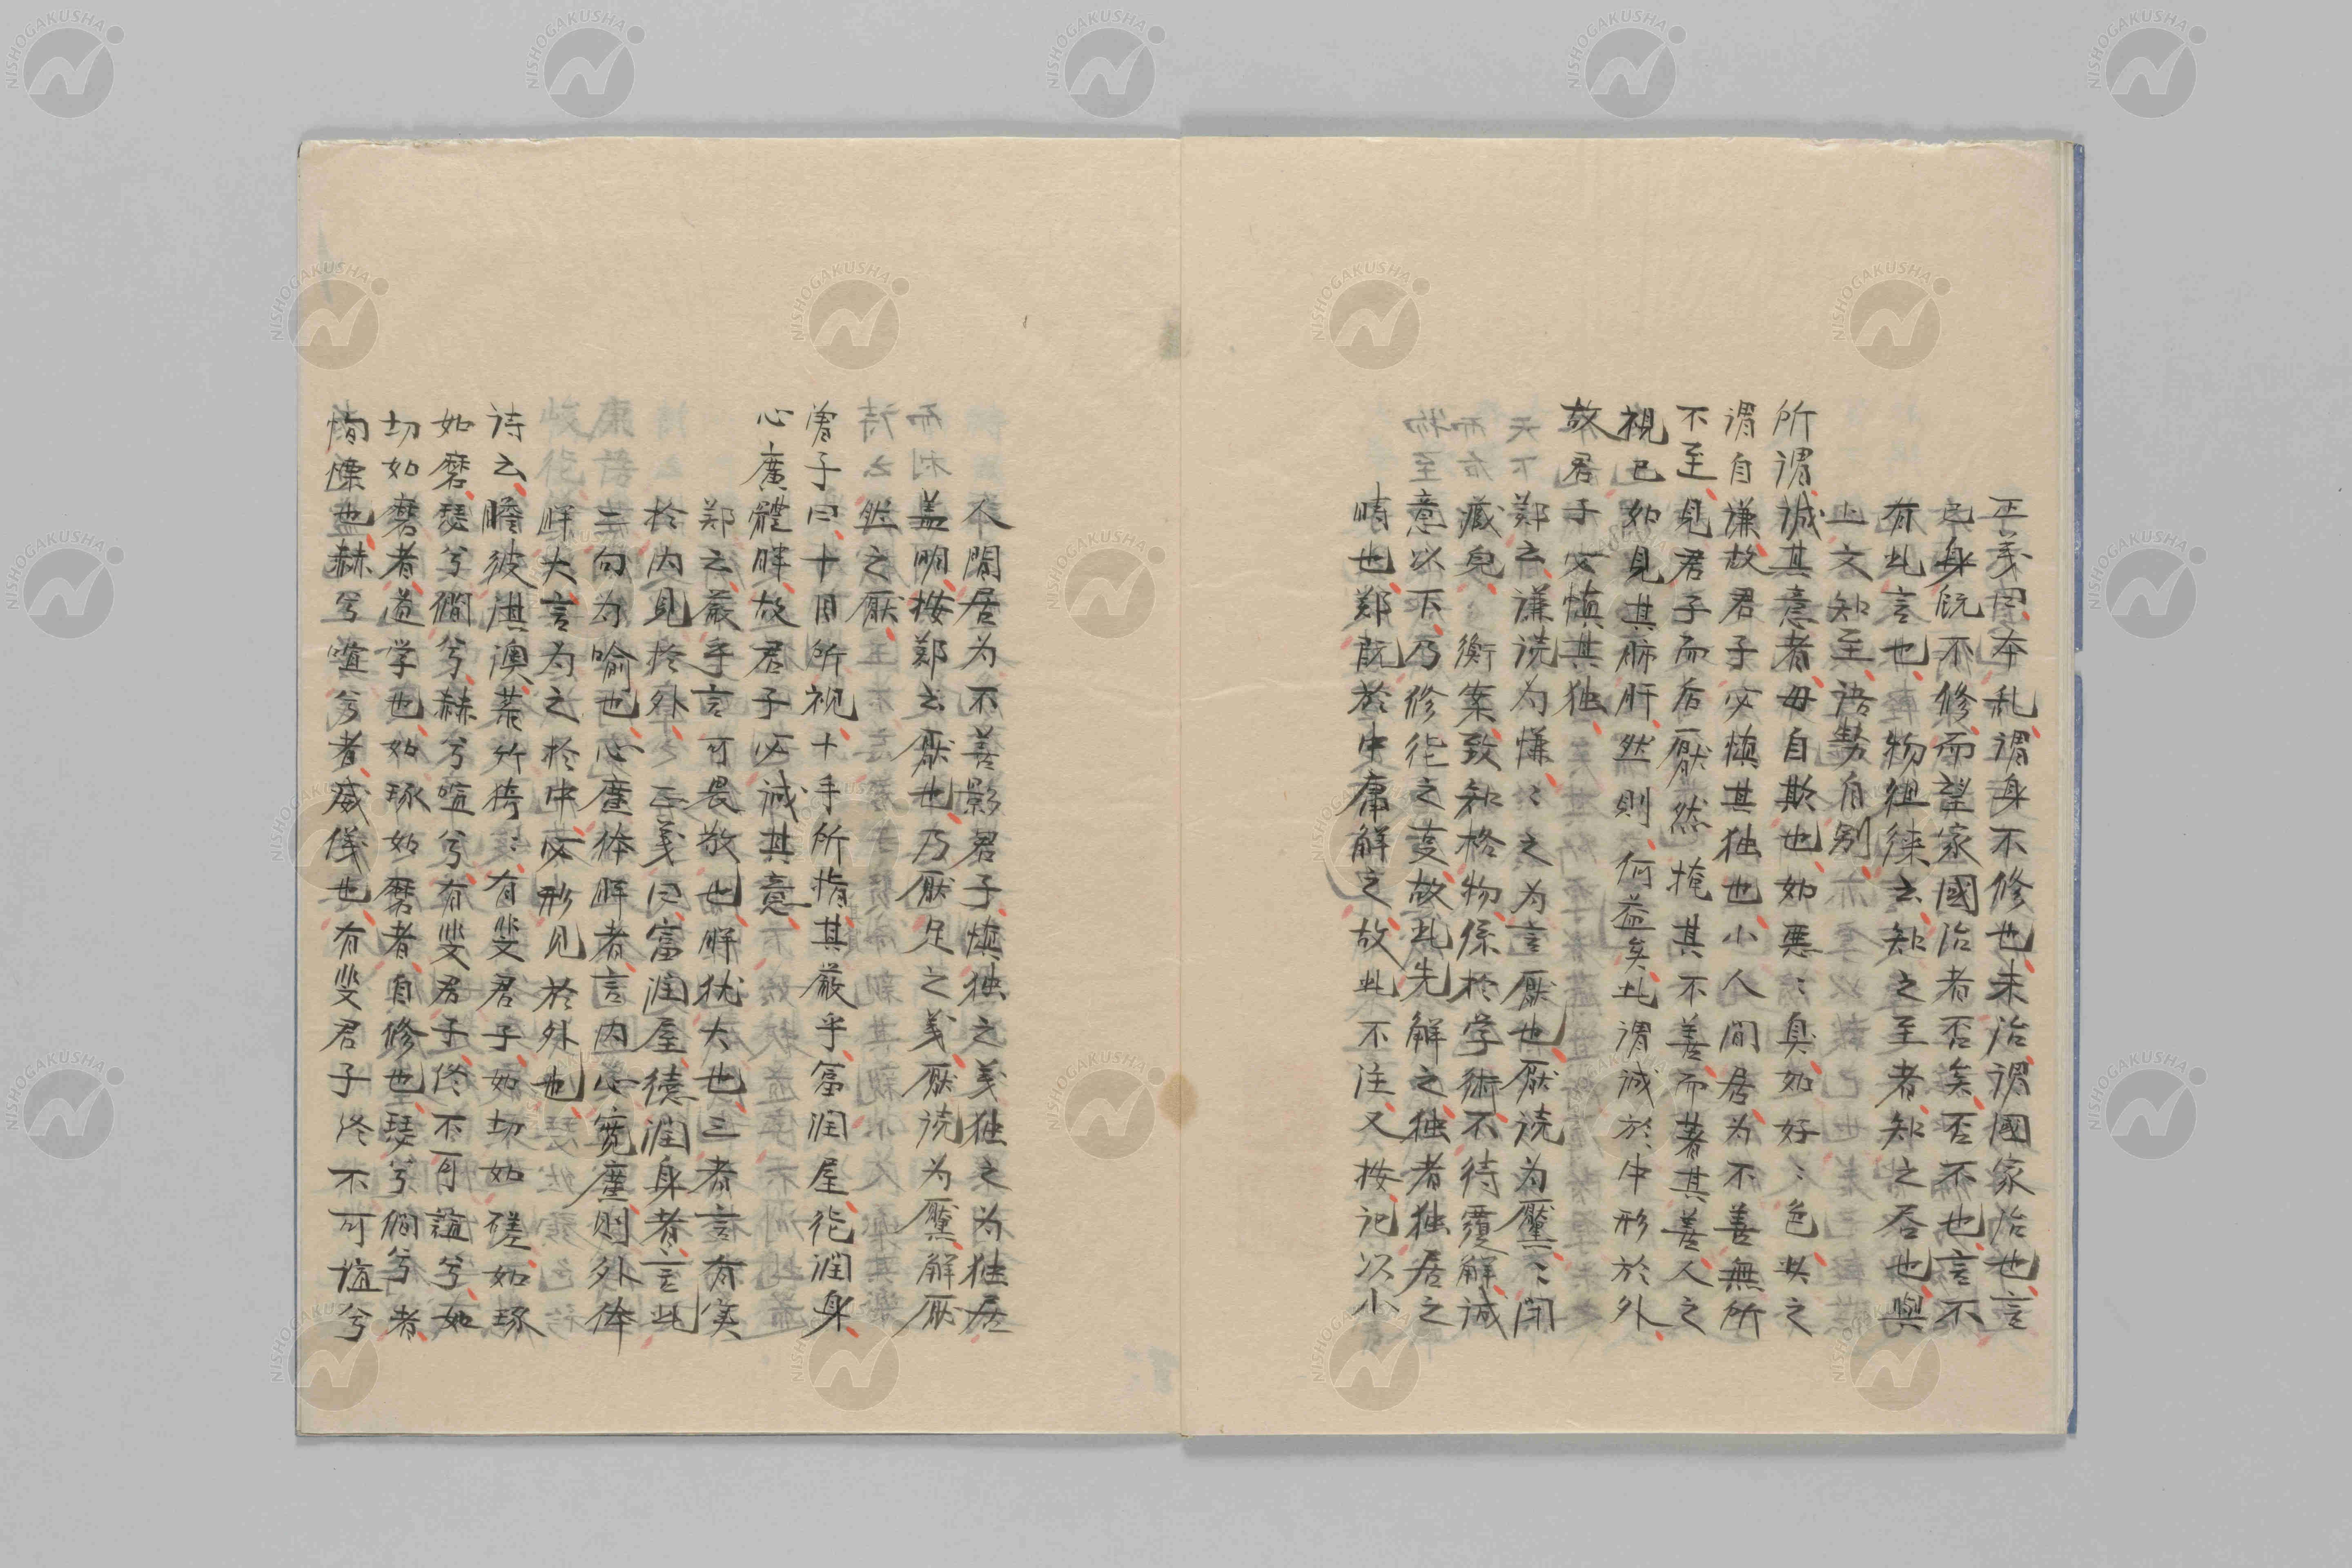 正義曰本乱謂身不修也未治謂國家治也言
己身既不修而望家國治者否矣否不也言不
有此言也物徂徠云知之至者知之否也與
上文知至語勢自別
所謂誠其意者毋自欺也如惡〻臭如好〻色此之
謂自謙故君子必慎其独也小人間居為不善無所
不至見君子而后厭然掩其不善而著其善人之
視己如見其肺肝然則何益矣此謂誠於中形於外
故君子必慎其独
鄭云謙読為慊〻之為言厭也厭読為黶〻閉
藏皃衡案致知格物係於学術不待覆解誠
意以下乃修徳之事故此先解之独者独居之
時也鄭既於中庸解之故此不注又按記以小
人間居為不善影君子慎独之義独之為独居
盖明按鄭云厭也乃厭足之義厭読为黶解厭
然之厭
曽子曰十目所視十手所指其嚴乎富润屋徳润身
心廣體胖故君子必誠其意
鄭云嚴乎言可畏敬也胖犹大也三者言有実
於内見於外正義曰富润屋德润身者言此
二句为喻也心廣体胖者言内心寛廣則外体
胖大言为之於中必形见於外也
诗云瞻彼淇澳菉竹猗〻有斐君子如切如磋如琢
如磨瑟兮僩兮赫兮喧兮有斐君子终不可諠兮如
切如磋者道学也如琢如磨者自修也瑟兮僩兮者
恂慄也赫兮喧兮者威儀也有斐君子终不可諠兮